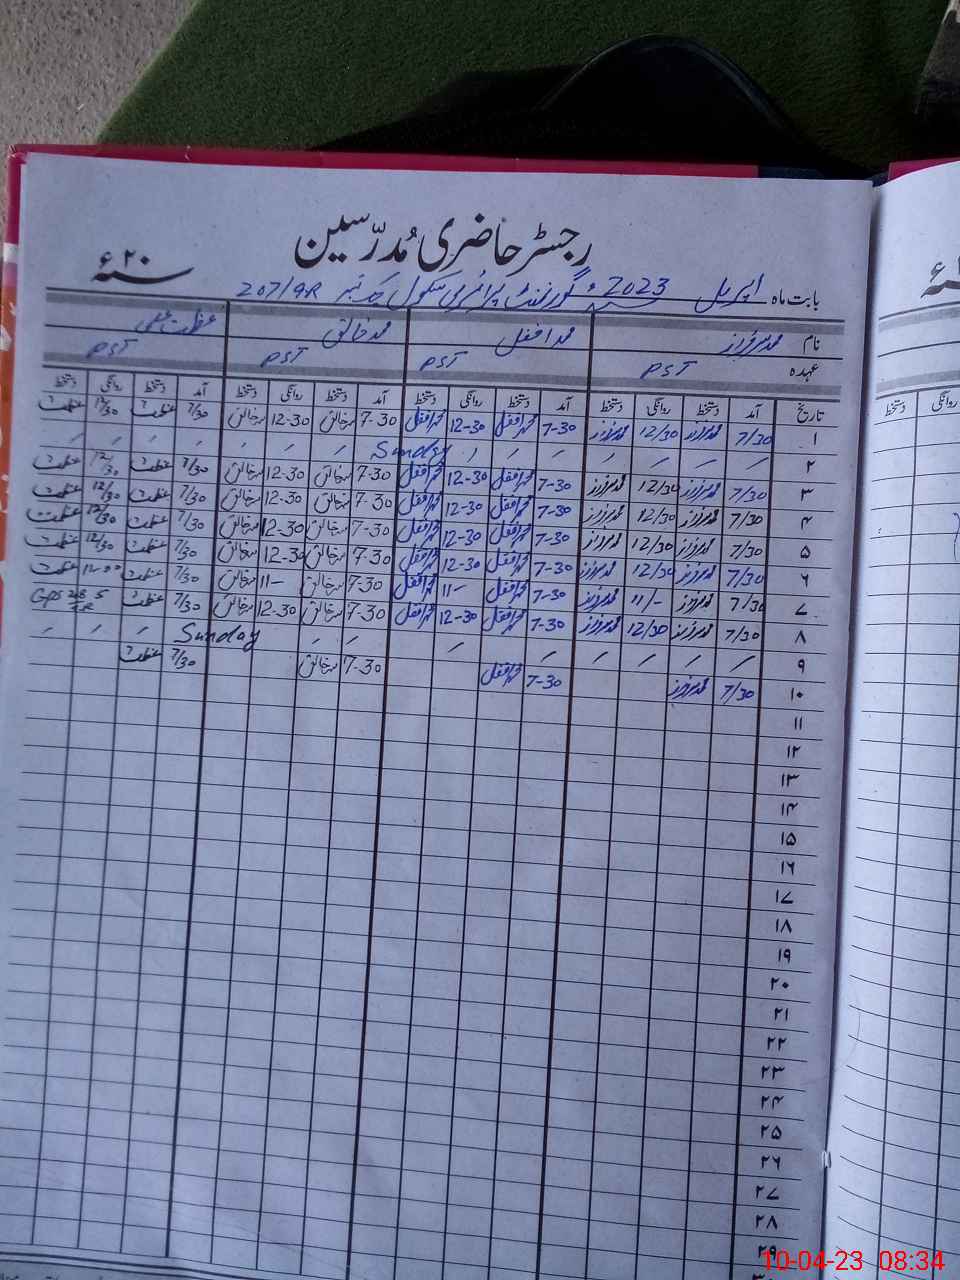 رجسٹر حاضری مُدرّسین
۲۰ء سنہ
بابت ماہ اپریل 2023ء گورنمنٹ پرائمری سکول چک نمبر 207/9R
نام محمد سرفراز محمد افضل محمد خالق عظمت علی
عہدہ PST PST PST PST
تاریخ آمد دستخط روانگی دستخط آمد دستخط روانگی دستخط آمد دستخط روانگی دستخط آمد دستخط روانگی دستخط
۱ 7/30 محمد سرفراز 12/30 محمد سرفراز 7-30 محمد افضل 12-30 محمد افضل 7-30 محمد خالق 12-30 محمد خالق 7/30 عظمت 12/30 عظمت
۲ Sunday
۳ 7/30 محمد سرفراز 12/30 محمد سرفراز 7-30 محمد افضل 12-30 محمد افضل 7-30 محمد خالق 12-30 محمد خالق 7/30 عظمت 12/30 عظمت
۴ 7/30 محمد سرفراز 12/30 محمد سرفراز 7-30 محمد افضل 12-30 محمد افضل 7-30 محمد خالق 12-30 محمد خالق 7/30 عظمت 12/30 عظمت
۵ 7/30 محمد سرفراز 12/30 محمد سرفراز 7-30 محمد افضل 12-30 محمد افضل 7-30 محمد خالق 12-30 محمد خالق 7/30 عظمت 12/30 عظمت
۶ 7/30 محمد سرفراز 12/30 محمد سرفراز 7-30 محمد افضل 12-30 محمد افضل 7-30 محمد خالق 12-30 محمد خالق 7/30 عظمت 12/30 عظمت
۷ 7/30 محمد سرفراز 11/- محمد سرفراز 7-30 محمد افضل 11- محمد افضل 7-30 محمد خالق 11- محمد خالق 7/30 عظمت 11-00 عظمت
۸ 7/30 محمد سرفراز 12/30 محمد سرفراز 7-30 محمد افضل 12-30 محمد افضل 7-30 محمد خالق 12-30 محمد خالق 7/30 عظمت GPS
۹ Sunday
۱۰ 7/30 محمد سرفراز 7-30 محمد افضل 7-30 محمد خالق 7/30 عظمت
۱۱
۱۲
۱۳
۱۴
۱۵
۱۶
۱۷
۱۸
۱۹
۲۰
۲۱
۲۲
۲۳
۲۴
۲۵
۲۶
۲۷
۲۸
۲۹
روانگی دستخط
10-04-23 08:34